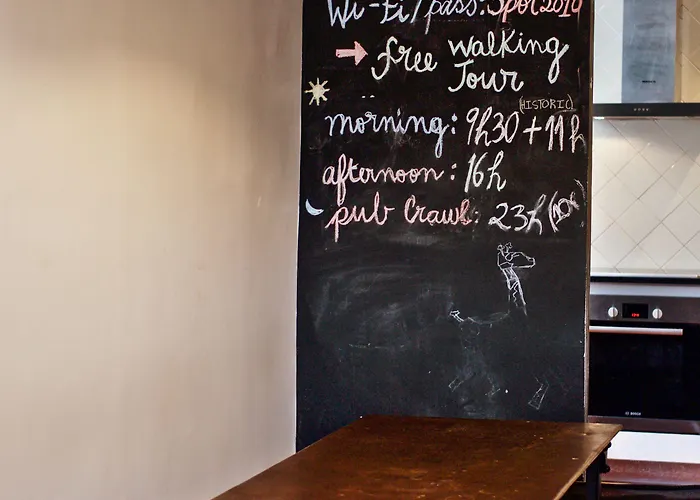 Wi-Fi/pass: Spot2010
free walking
Tour
(HISTORIC)
morning: 9h30 + 11h
afternoon: 16h
pub Crawl: 23h
BOSCH